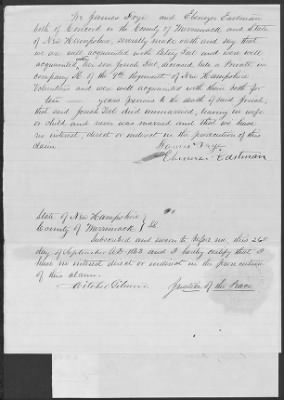 We Francis Frye and Ebenezer Eastman
both of Concord in the County of Merrimack and State
of New Hampshire, severally make oath and say that
we are well acquainted with and were well
acquainted with her son Josiah deceased, late a Private in
Company H. of the 4th Regiment of New Hampshire
Volunteers and were well acquainted with them both for
ten years previous to the death of said Josiah,
that said Josiah died unmarried, leaving no wife
or child and never was married and that we have
no interest, direct or indirect in the prosecution of this
claim.
Francis Frye
Ebenezer Eastman
State of New Hampshire
County of Merrimack } SS.
Subscribed and sworn to before me, this 26th
day of September AD. 1863 and I hereby certify that I
have no interest direct or indirect in the prosecution
of this claim.
Justice of the Peace